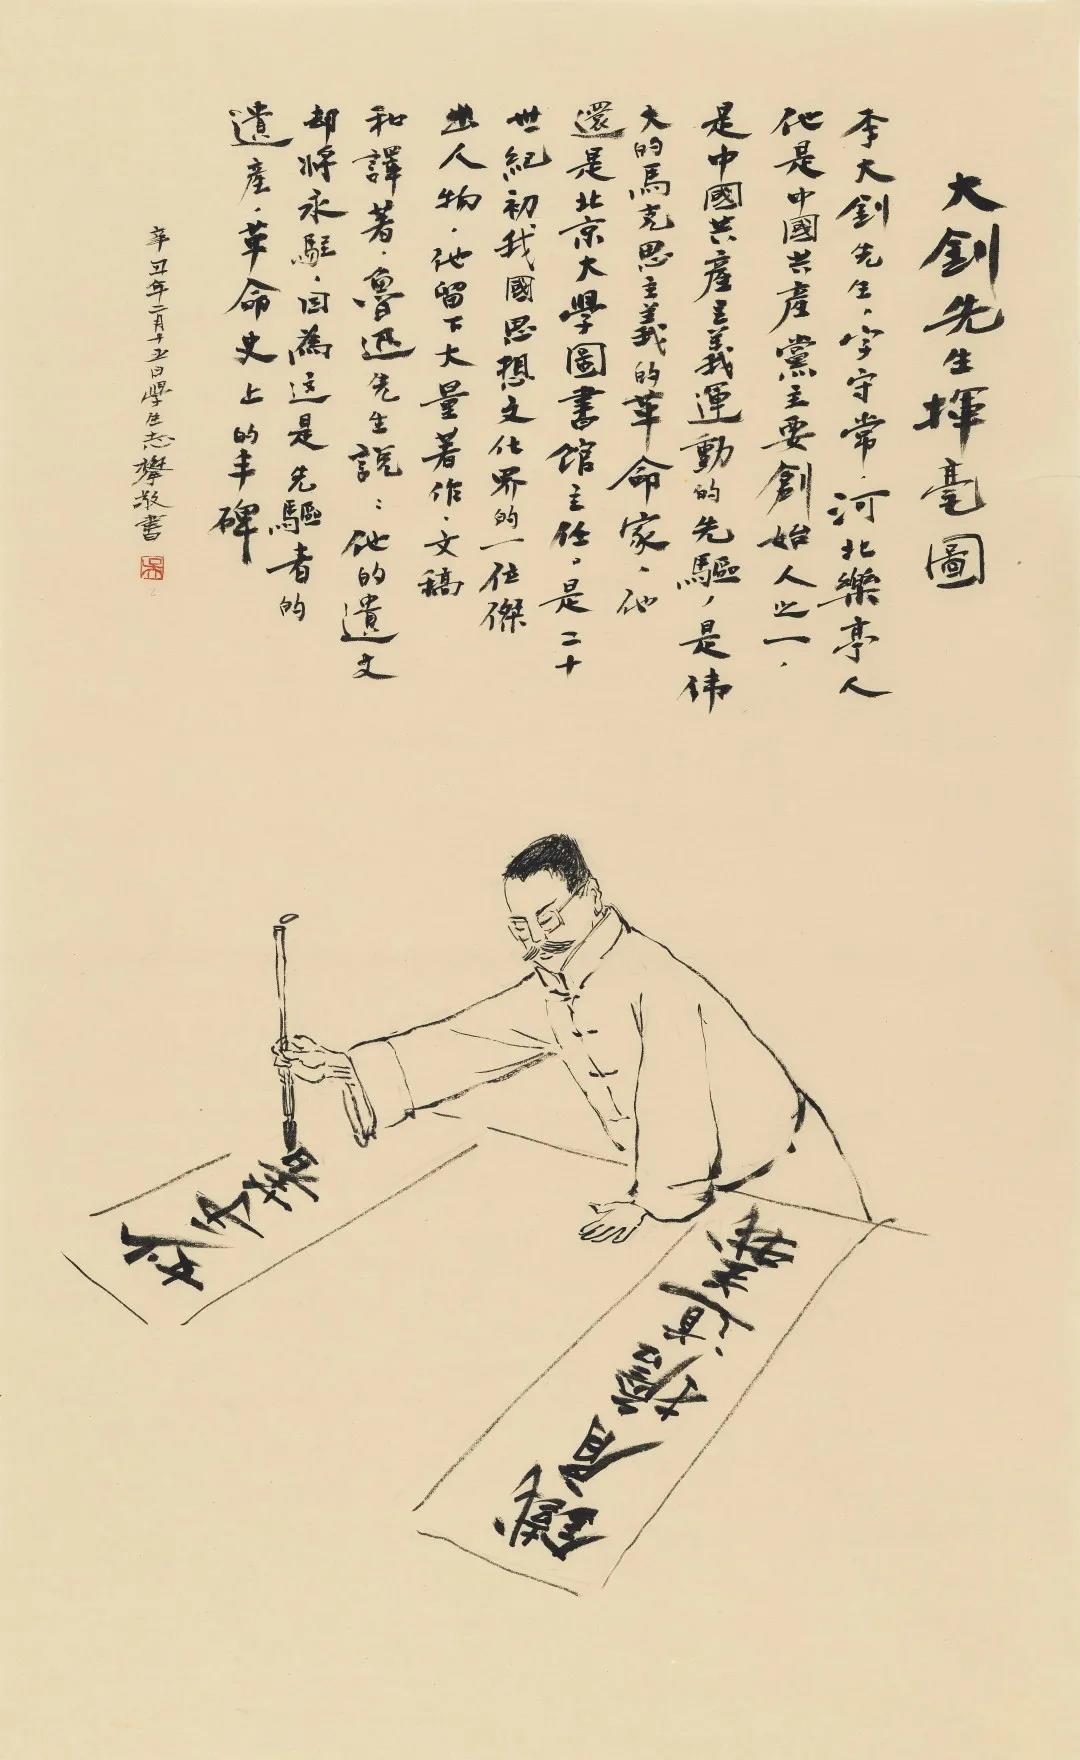 大釗先生揮毫圖
李大釗先生，字守常，河北樂亭人
他是中國共產黨主要創始人之一，
是中國共產主義運動的先驅，是偉
大的馬克思主義的革命家、他
還是北京大學圖書館主任。是二十
世紀初我國思想文化界的一位傑
出人物，他留下大量著作、文稿
和譯著，魯迅先生說：他的遺文
却將永駐，因為這是先驅者的
遺產，革命史上的丰碑
辛丑年二月十五日學生志攀敬書
吴
鐵肩擔道義
妙手著